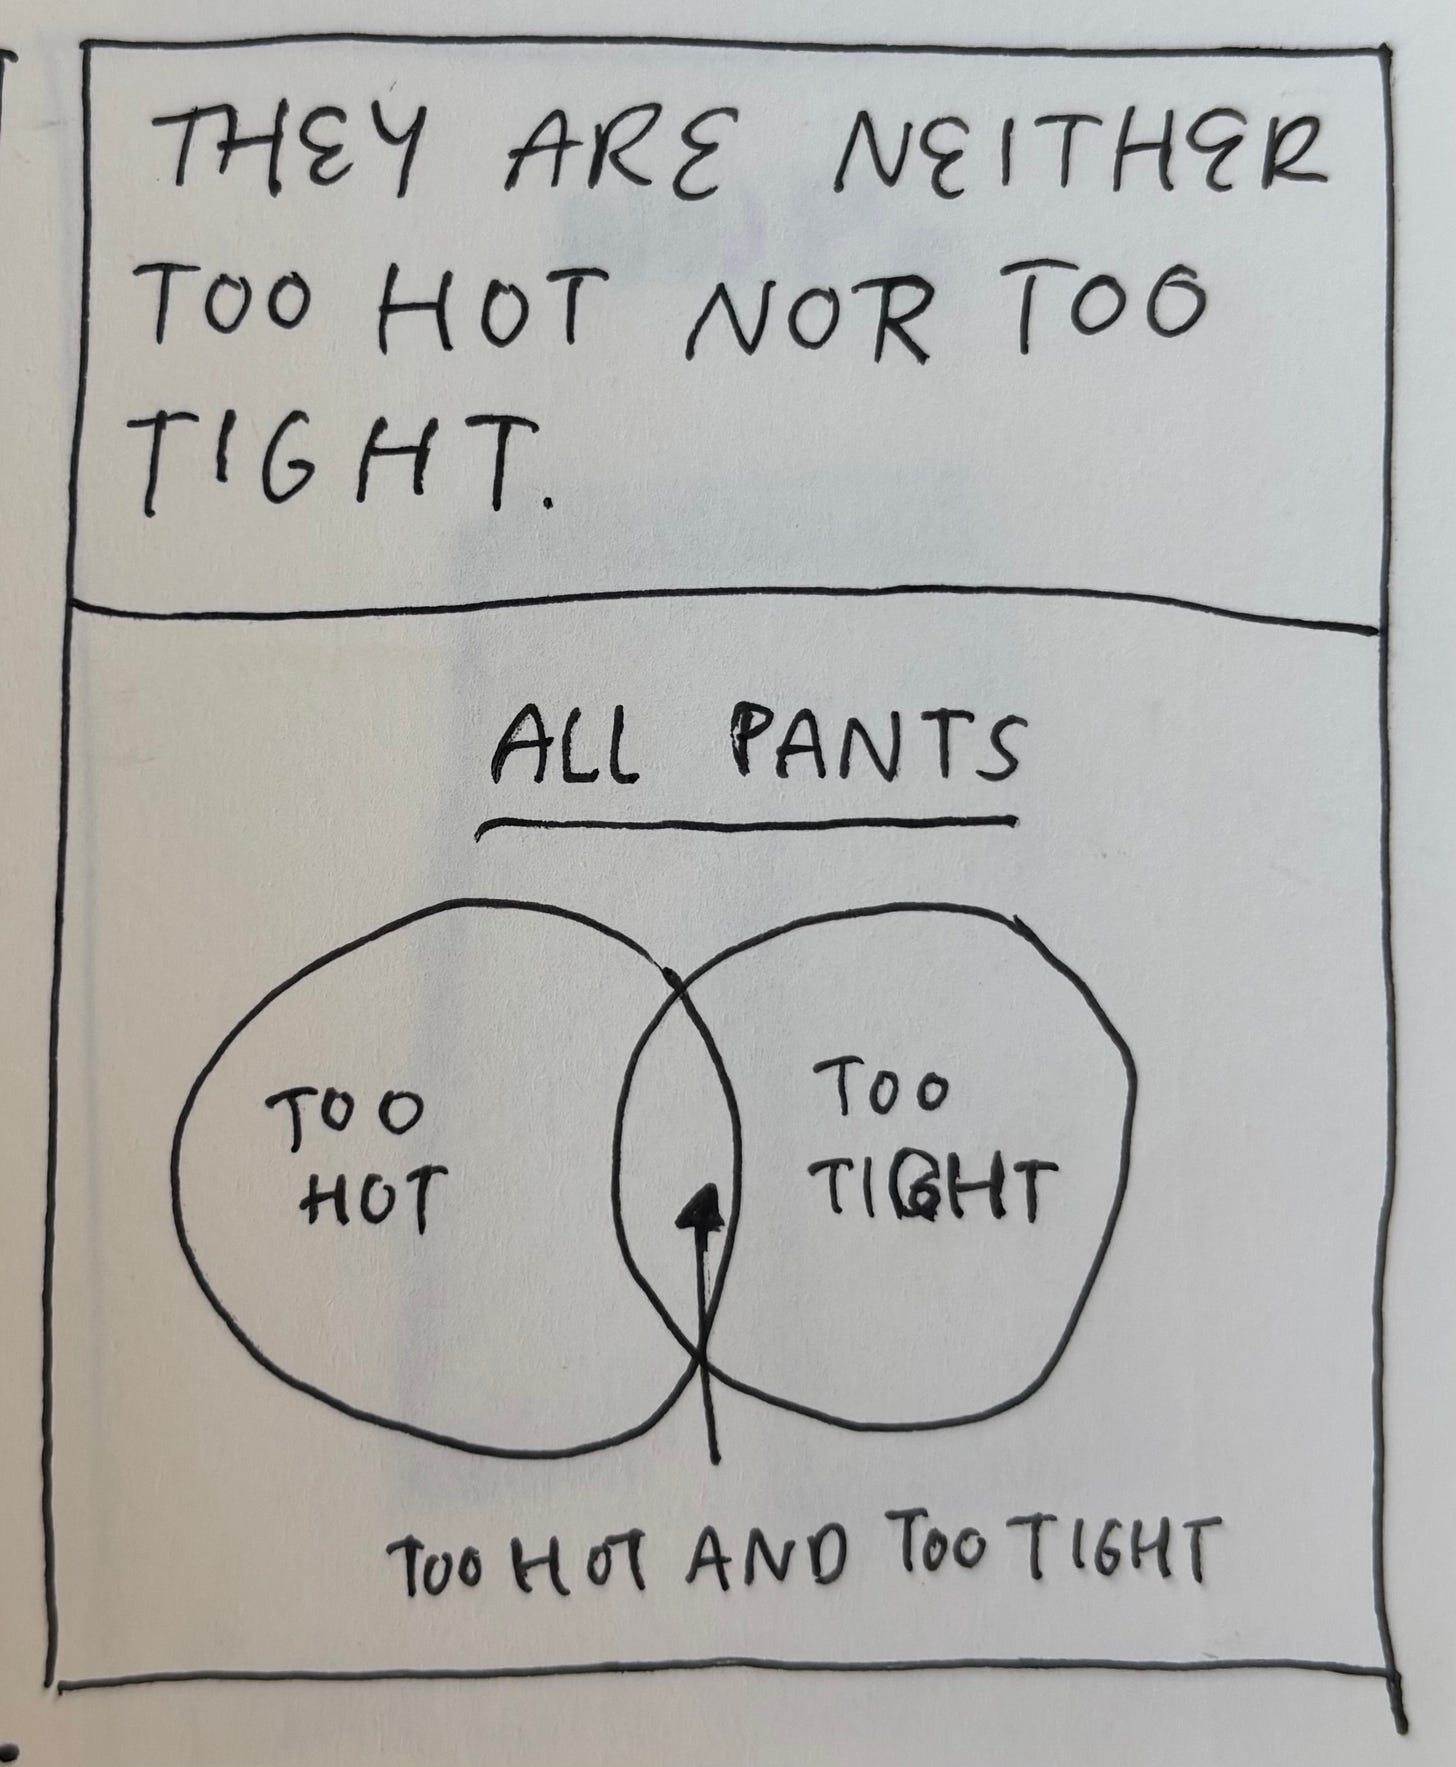 THEY ARE NEITHER
TOO HOT NOR TOO
TIGHT.
ALL PANTS
TOO
HOT
TOO
TIGHT
TOO HOT AND TOO TIGHT